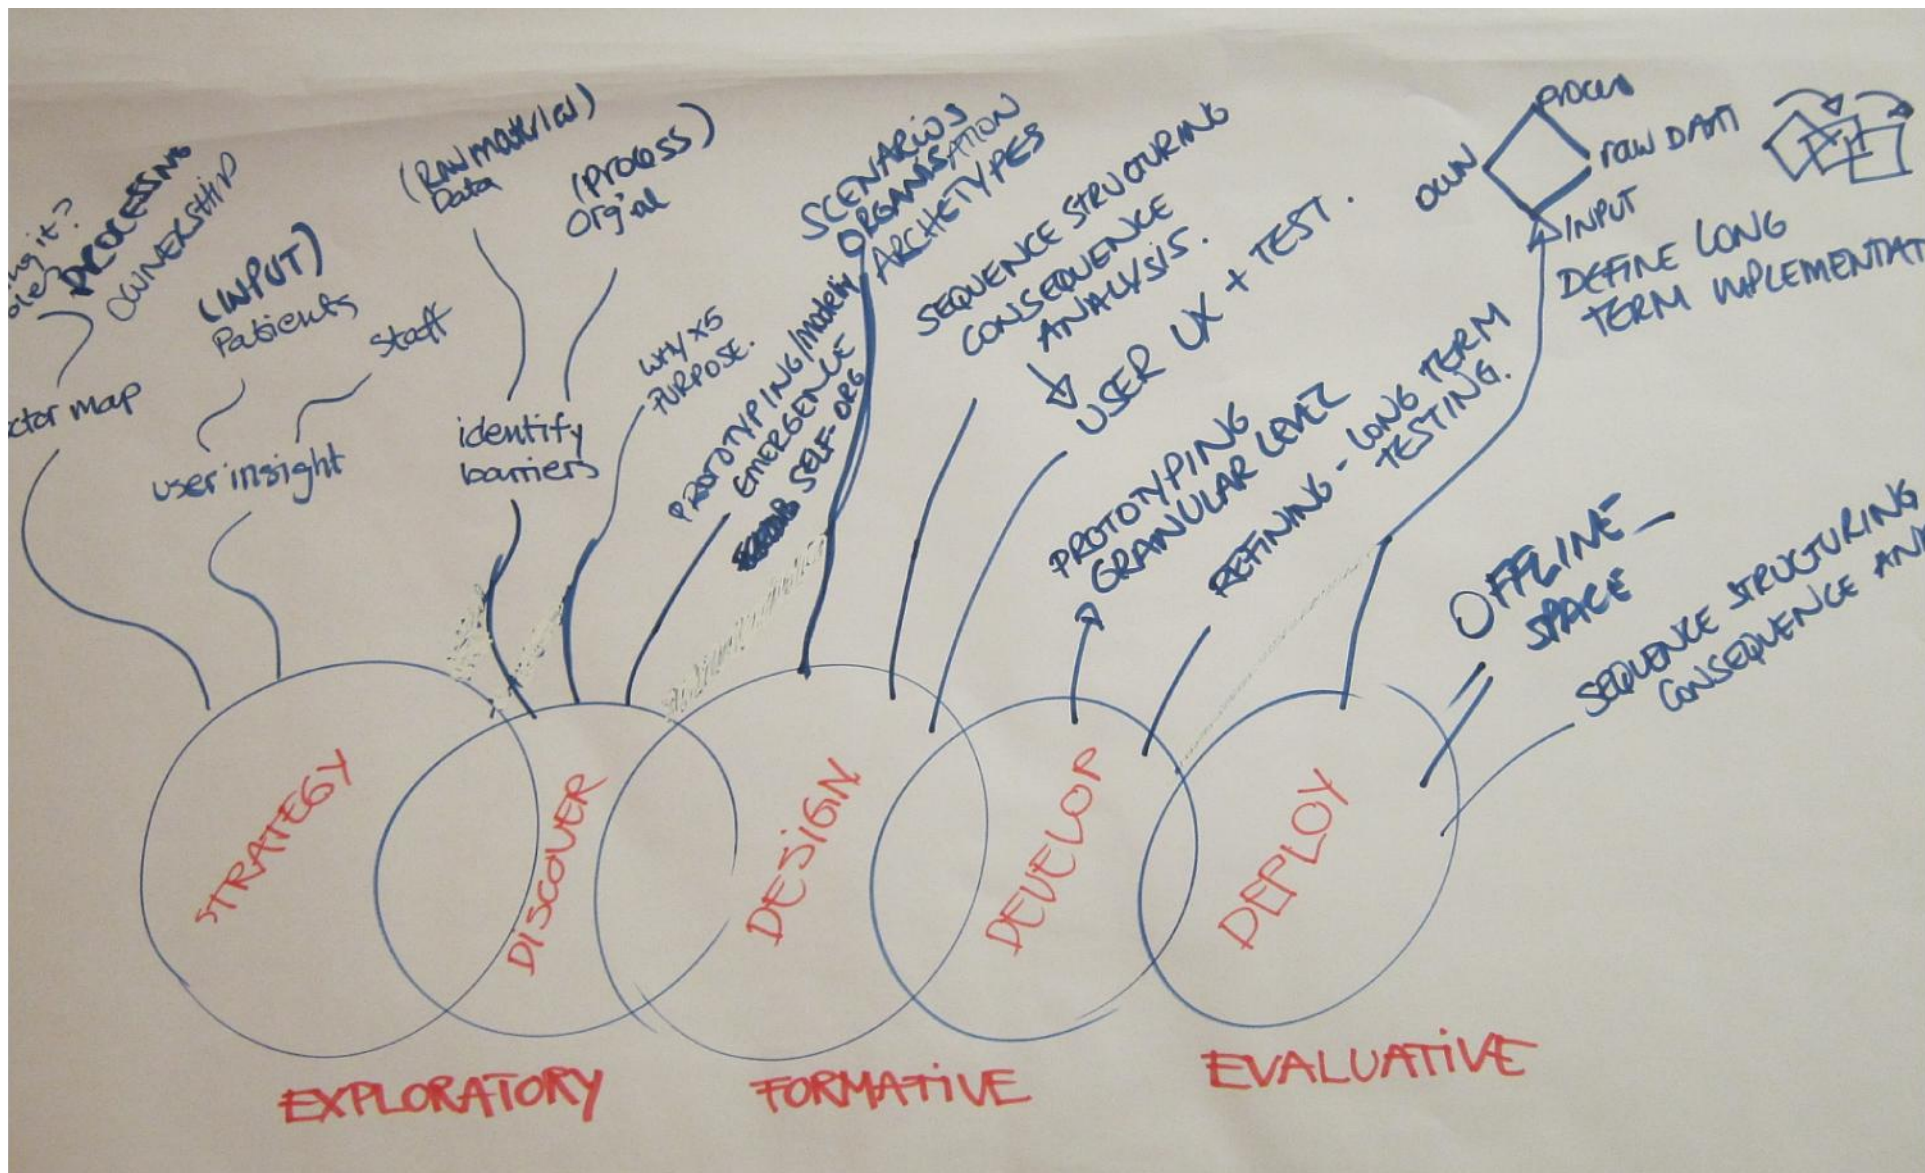 ng it?
PROCESSING
OWNERSHIP
ctor map
(INPUT)
Patients
Staff
user insight
(RAW MATERIAL)
Data
(PROCESS)
Org'al
identify
barriers
WHY X5
PURPOSE.
PROTOTYPING/modelin
EMERGENCE
SELF-ORG
SCENARIOS
ORGANISATION
ARCHETYPES
SEQUENCE STRUCTURING
CONSEQUENCE
ANALYSIS.
USER UX + TEST.
PROTOTYPING
GRANULAR LEVEL
REFINING - LONG TERM
TESTING.
OWN
process
raw DATA
INPUT
DEFINE LONG
TERM IMPLEMENTAT
OFFLINE
SPACE
SEQUENCE STRUCTURING
CONSEQUENCE AN
STRATEGY
DISCOVER
DESIGN
DEVELOP
DEPLOY
EXPLORATORY
FORMATIVE
EVALUATIVE